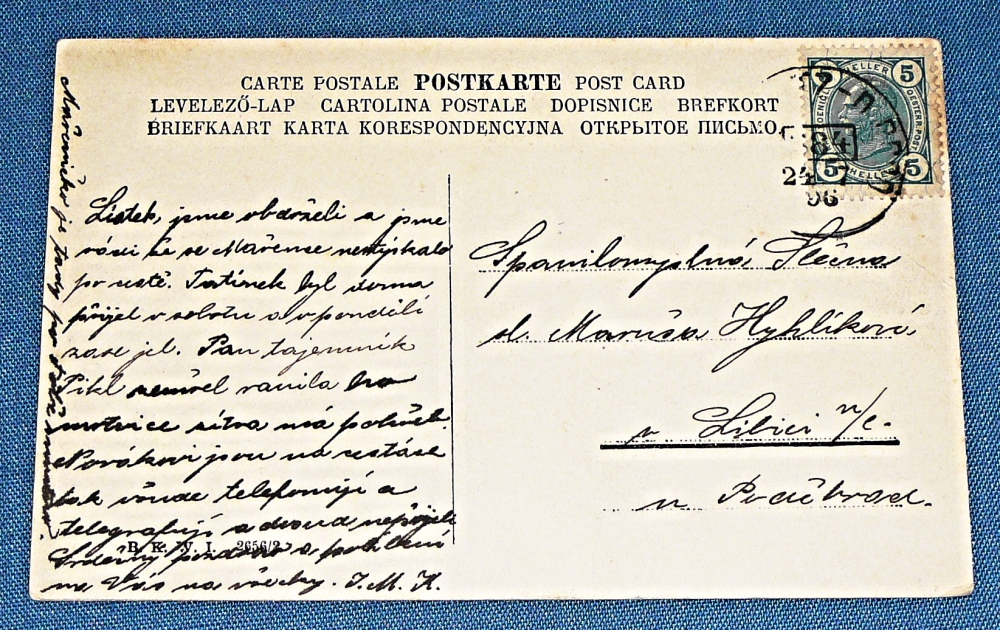 CARTE POSTALE POSTKARTE POST CARD
LEVELEZŐ-LAP CARTOLINA POSTALE DOPISNICE BREFKORT
BRIEFKAART KARTA KORESPONDENCYJNA ОТКРЫТОЕ ПИСЬМО.
5 HELLER 5
5 HELLER 5
OESTERR. POST
24
96
Lístek, jsme obdrželi a jsme
rádi že se Mařence nestýskalo
po
Tatínek byl doma
přijel v sobotu a v pondělí
zase jel. Pan tajemník
Pikl zemřel ranila ho
mrtvice zítra má pohřeb.
Novákovi jsou na cestách
tak všude telefonují a
telegrafují a dosud nepřijeli
Srdečný pozdrav a políbení
na Vás na všecky. J. M. H.
B. K. W. I. 2656/2
Spanilomyslná Slečna
sl. Maruša Hyhlíková
v Libici n/c.
u Poděbrad.